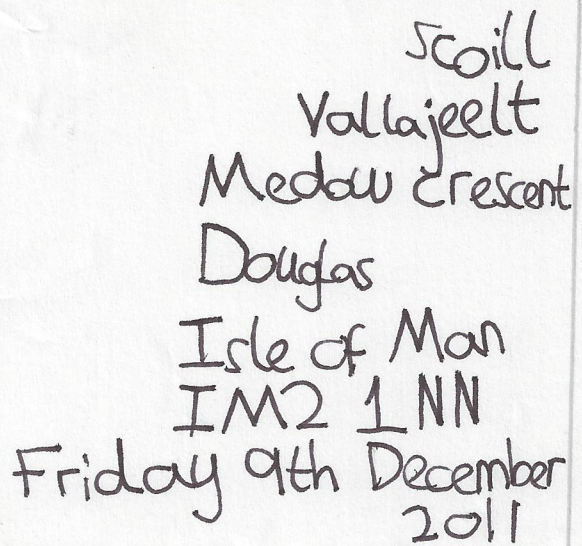 Scoill
Vallajeelt
Medow Crescent
Douglas
Isle of Man
IM2 1NN
Friday 9th December
2011